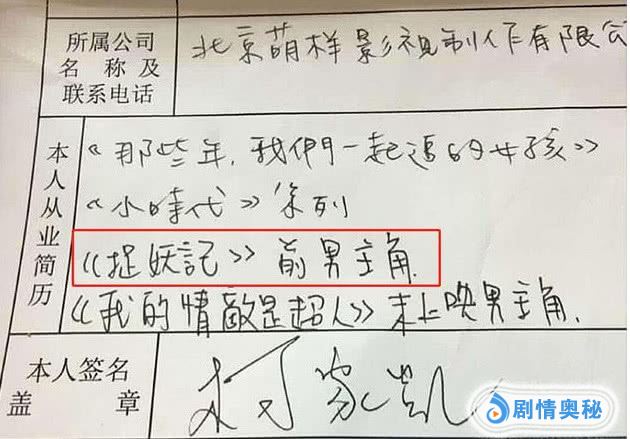 所属公司
名称及
联系电话
北京萌样影视制作有限公
本人从业简历
《那些年,我們一起追的女孩》
《小時代》系列
《捉妖記》前男主角.
《我的情敵是超人》未上映男主角.
本人签名
盖章
柯家凯
剧情奥秘